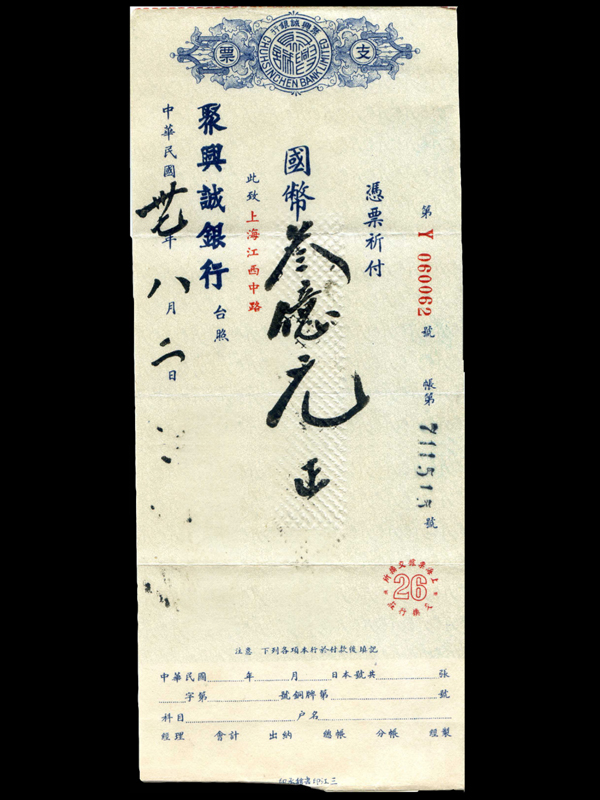 聚興誠銀行
支票
CHUHSINCHEN BANK LIMITED
第 Y 060062 號
帳第 711515 號
憑票祈付
國幣叁億元正
此致上海江西中路
聚興誠銀行台照
中華民國卅七年八月二日
26
注意 下列各項本行於付款後填記
中華民國 年 月 日本號共 張
字第 號銅牌第 號
科目 户名
經理 會計 出納 總帳 分帳 經製